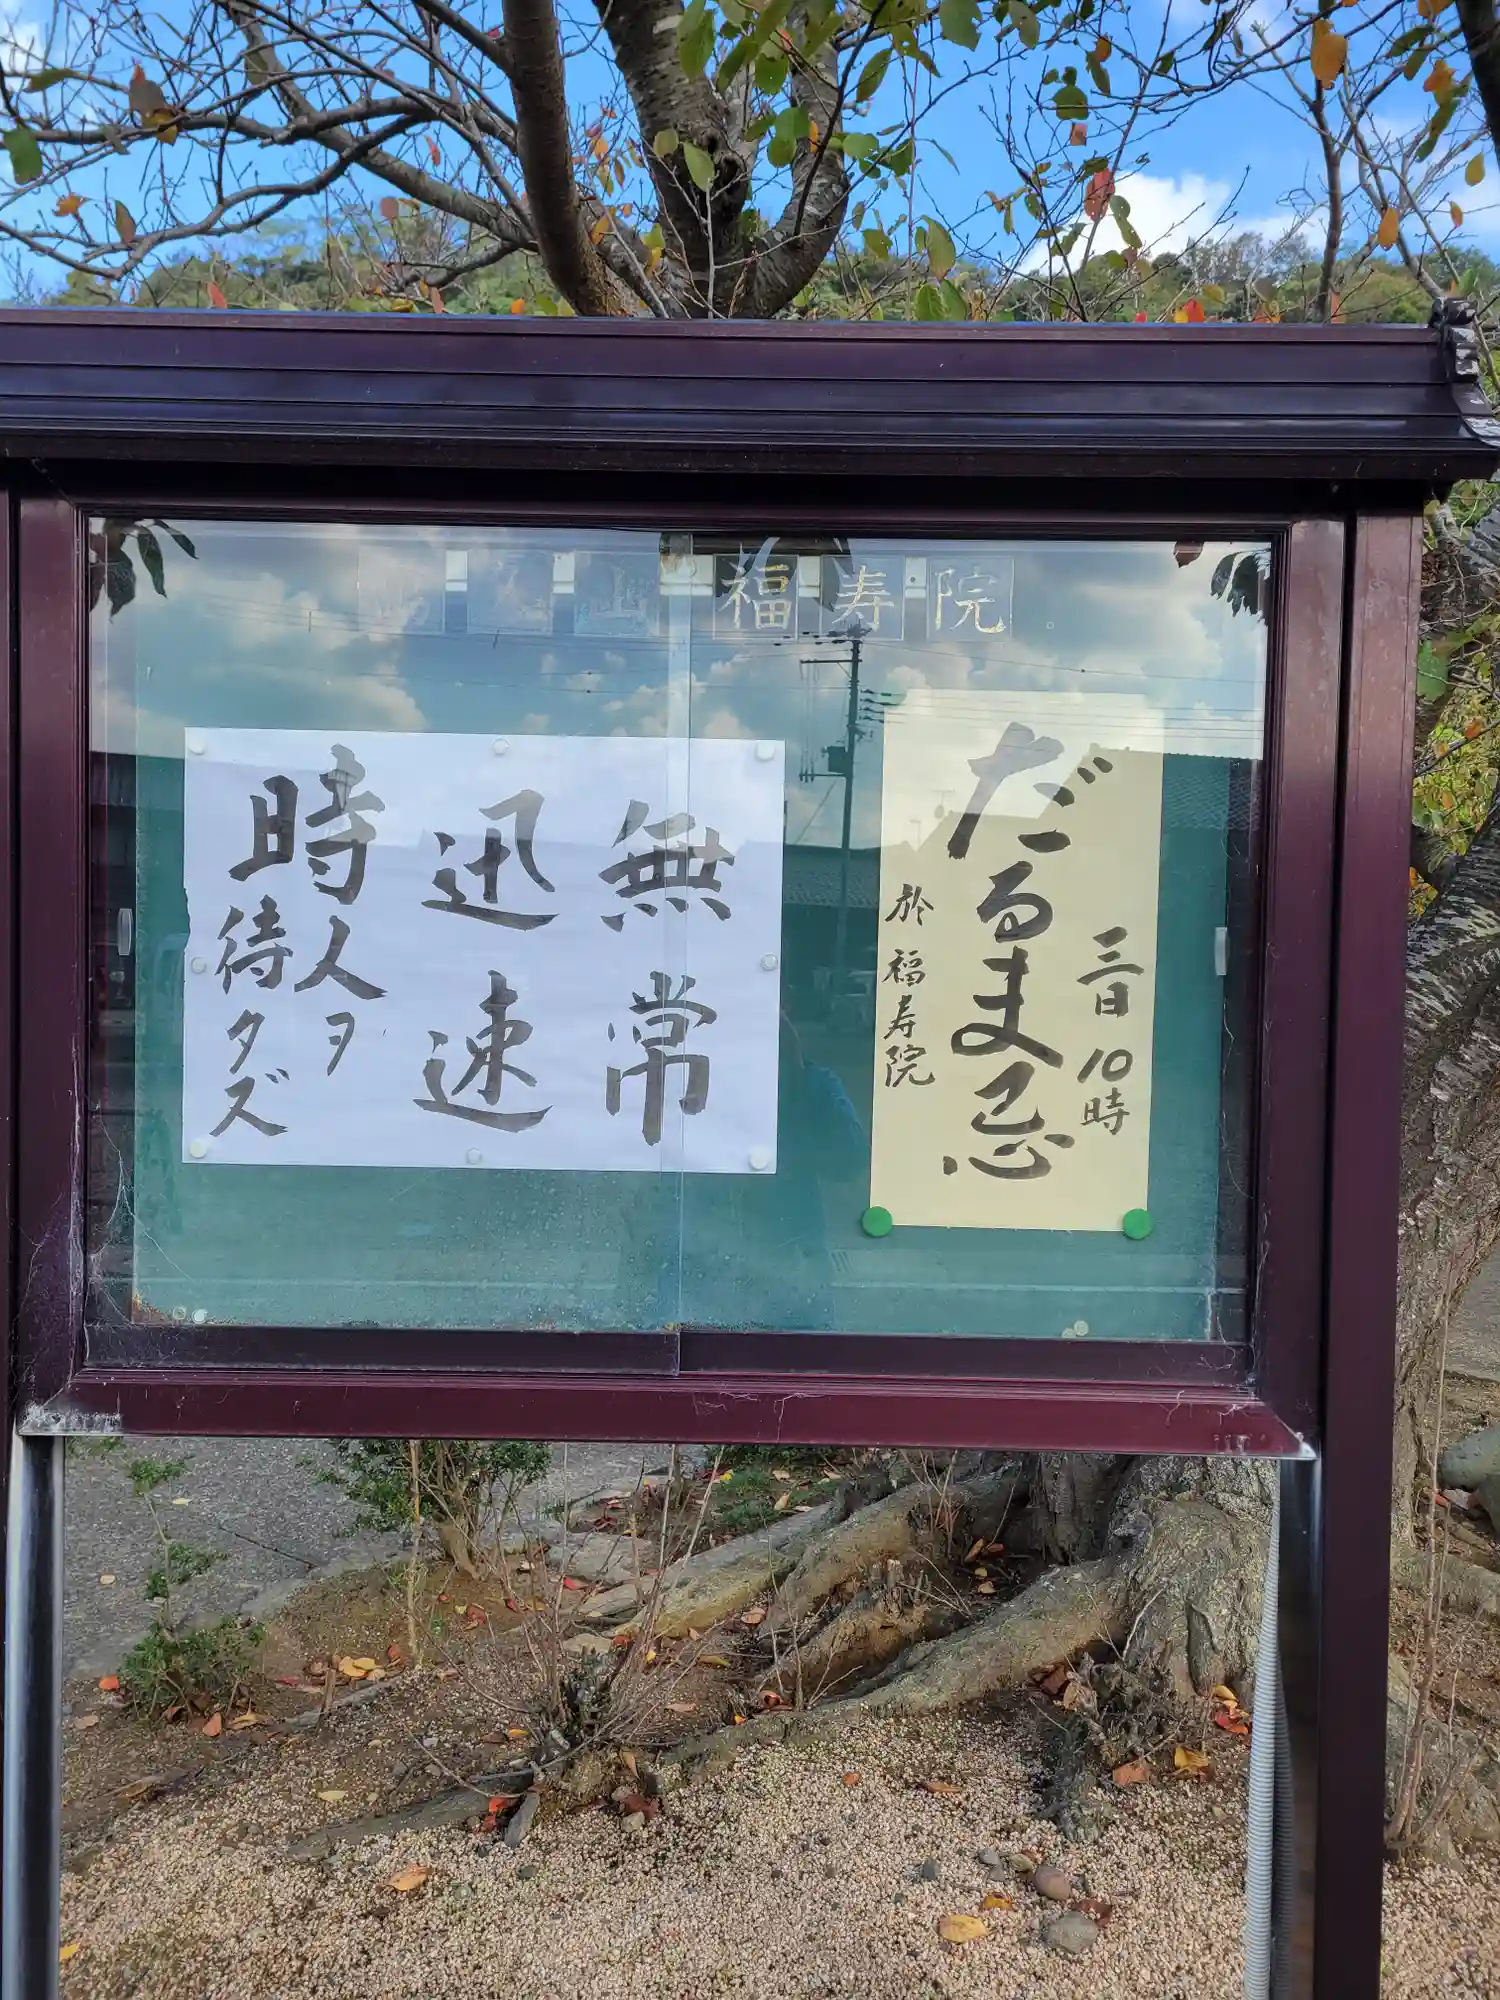 山 福寿院
三日 10時
だるま忌
於 福寿院
無常
迅速
時人ヲ
待タズ